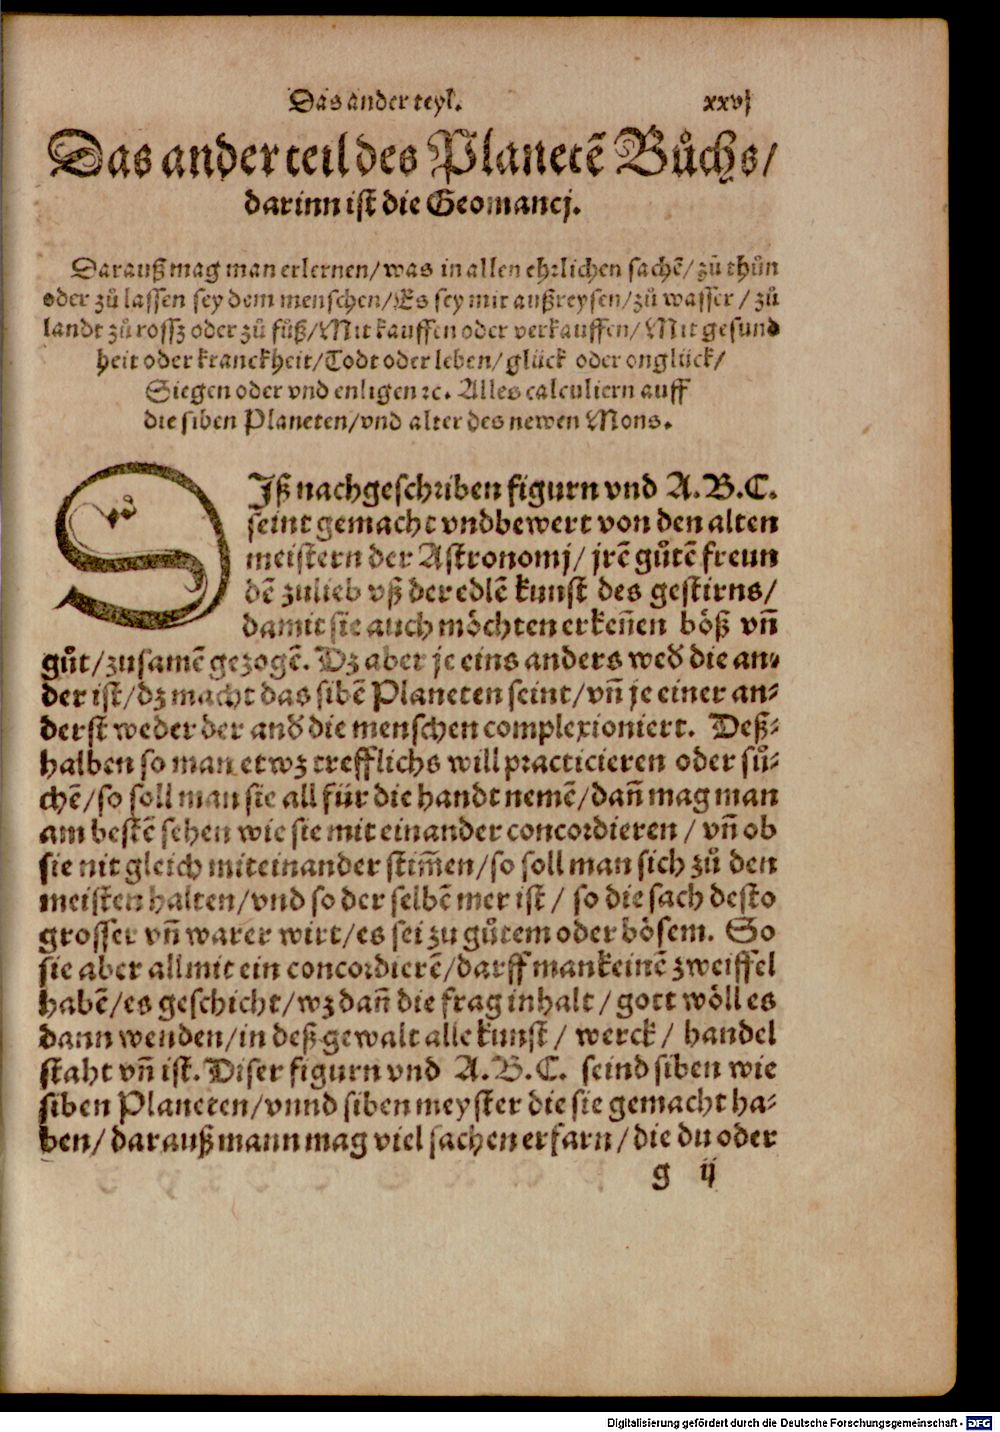 Das ander teyl. xxvj
Das ander teil des Planetē Bůchs/
darinn ist die Geomancj.
Darauß mag man erlernen/was in allen ehrlichen sachē/zů thůn
oder zů lassen sey dem menschen/Es sey mit außreysen/zů wasser/zů
landt zů rossz oder zů fůß/Mit kauffen oder verkauffen/Mit gesund
heit oder kranckheit/Todt oder leben/glück oder onglück/
Siegen oder vnd enligen ⁊c. Alles calculiern auff
die siben Planeten/vnd alter des newen Mons.
SIß nachgeschriben figurn vnd A.B.C.
seint gemacht vndbewert von den alten
meistern der Astronomj/ jrē gůtē freun
dē zulieb vß der edlē kunst des gestirns/
damit sie auch möchten erkeñen böß vñ
gůt/zusamē gezogē. Dz aber je eins anders wed die an⸗
der ist/dz macht das sibē Planeten seint/vñ je einer an⸗
derst weder der and die menschen complexioniert. Deß⸗
halben so man etwz trefflichs will practicieren oder sů⸗
chē/so soll man sie all für die handt nemē/dañ mag man
am bestē sehen wie sie mit einander concordieren/vñ ob
sie nit gleich miteinander stim̄en/so soll man sich zů den
meisten halten/vnd so der selbē mer ist/ so die sach desto
grosser vñ warer wirt/es sei zu gůtem oder bösem. So
sie aber allmit ein concordierē/darff mankeinē zweiffel
habē/es geschicht/wz dañ die frag inhalt/gott wöll es
dann wenden/in deß gewalt alle kunst/ werck/ handel
staht vñ ist. Diser figurn vnd A.B.C. seind siben wie
siben Planeten/vnnd siben meyster die sie gemacht ha⸗
ben/ darauß mann mag viel sachen erfarn/die du oder
g ij
Digitalisierung gefördert durch die Deutsche Forschungsgemeinschaft - DFG